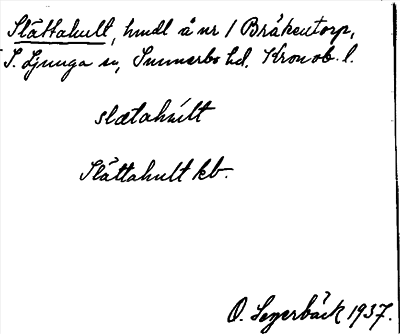 Slättahult, hmdl å nr 1 Bråkentorp,
S. Ljunga sn, Sunnerbo hd, Kronob. l.
slætahu̇lt
Slättahult kb.
O. Segerbäck 1937.